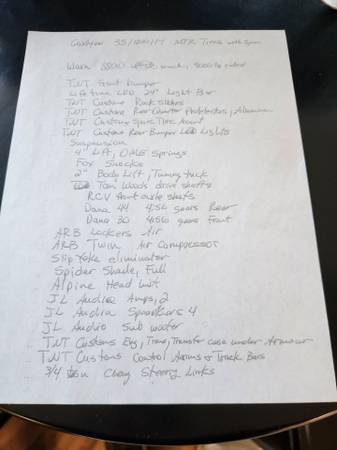 Goodyear 35/1250/17 MTR Tires with Spare
Warn 8800 winch,
TNT Front bumper
Lifetime LED 24" Light Bar
TNT Customs Rock Sliders
TNT Customs Rear Quarter Protectors, Aluminum
TNT Customs Spare Tire Mount
TNT Customs Rear Bumper LED Lights
Suspension
4" Lift, OME Springs
Fox Shocks
2" Body Lift, Tummy tuck
Tom Woods drive shafts
RCV front axle shafts
Dana 44 4:56 gears Rear
Dana 30 4:56 gears Front
ARB Lockers Air
ARB Twin Air Compressor
Slip Yoke eliminator
Spider Shade, Full
Alpine Head Unit
JL Audio Amps, 2
JL Audio Speakers 4
JL Audio Sub woofer
TNT Customs Eng, Trans, Transfer case under Armour
TNT Customs Control Arms & Track Bars
3/4 ton Chevy Steering Links